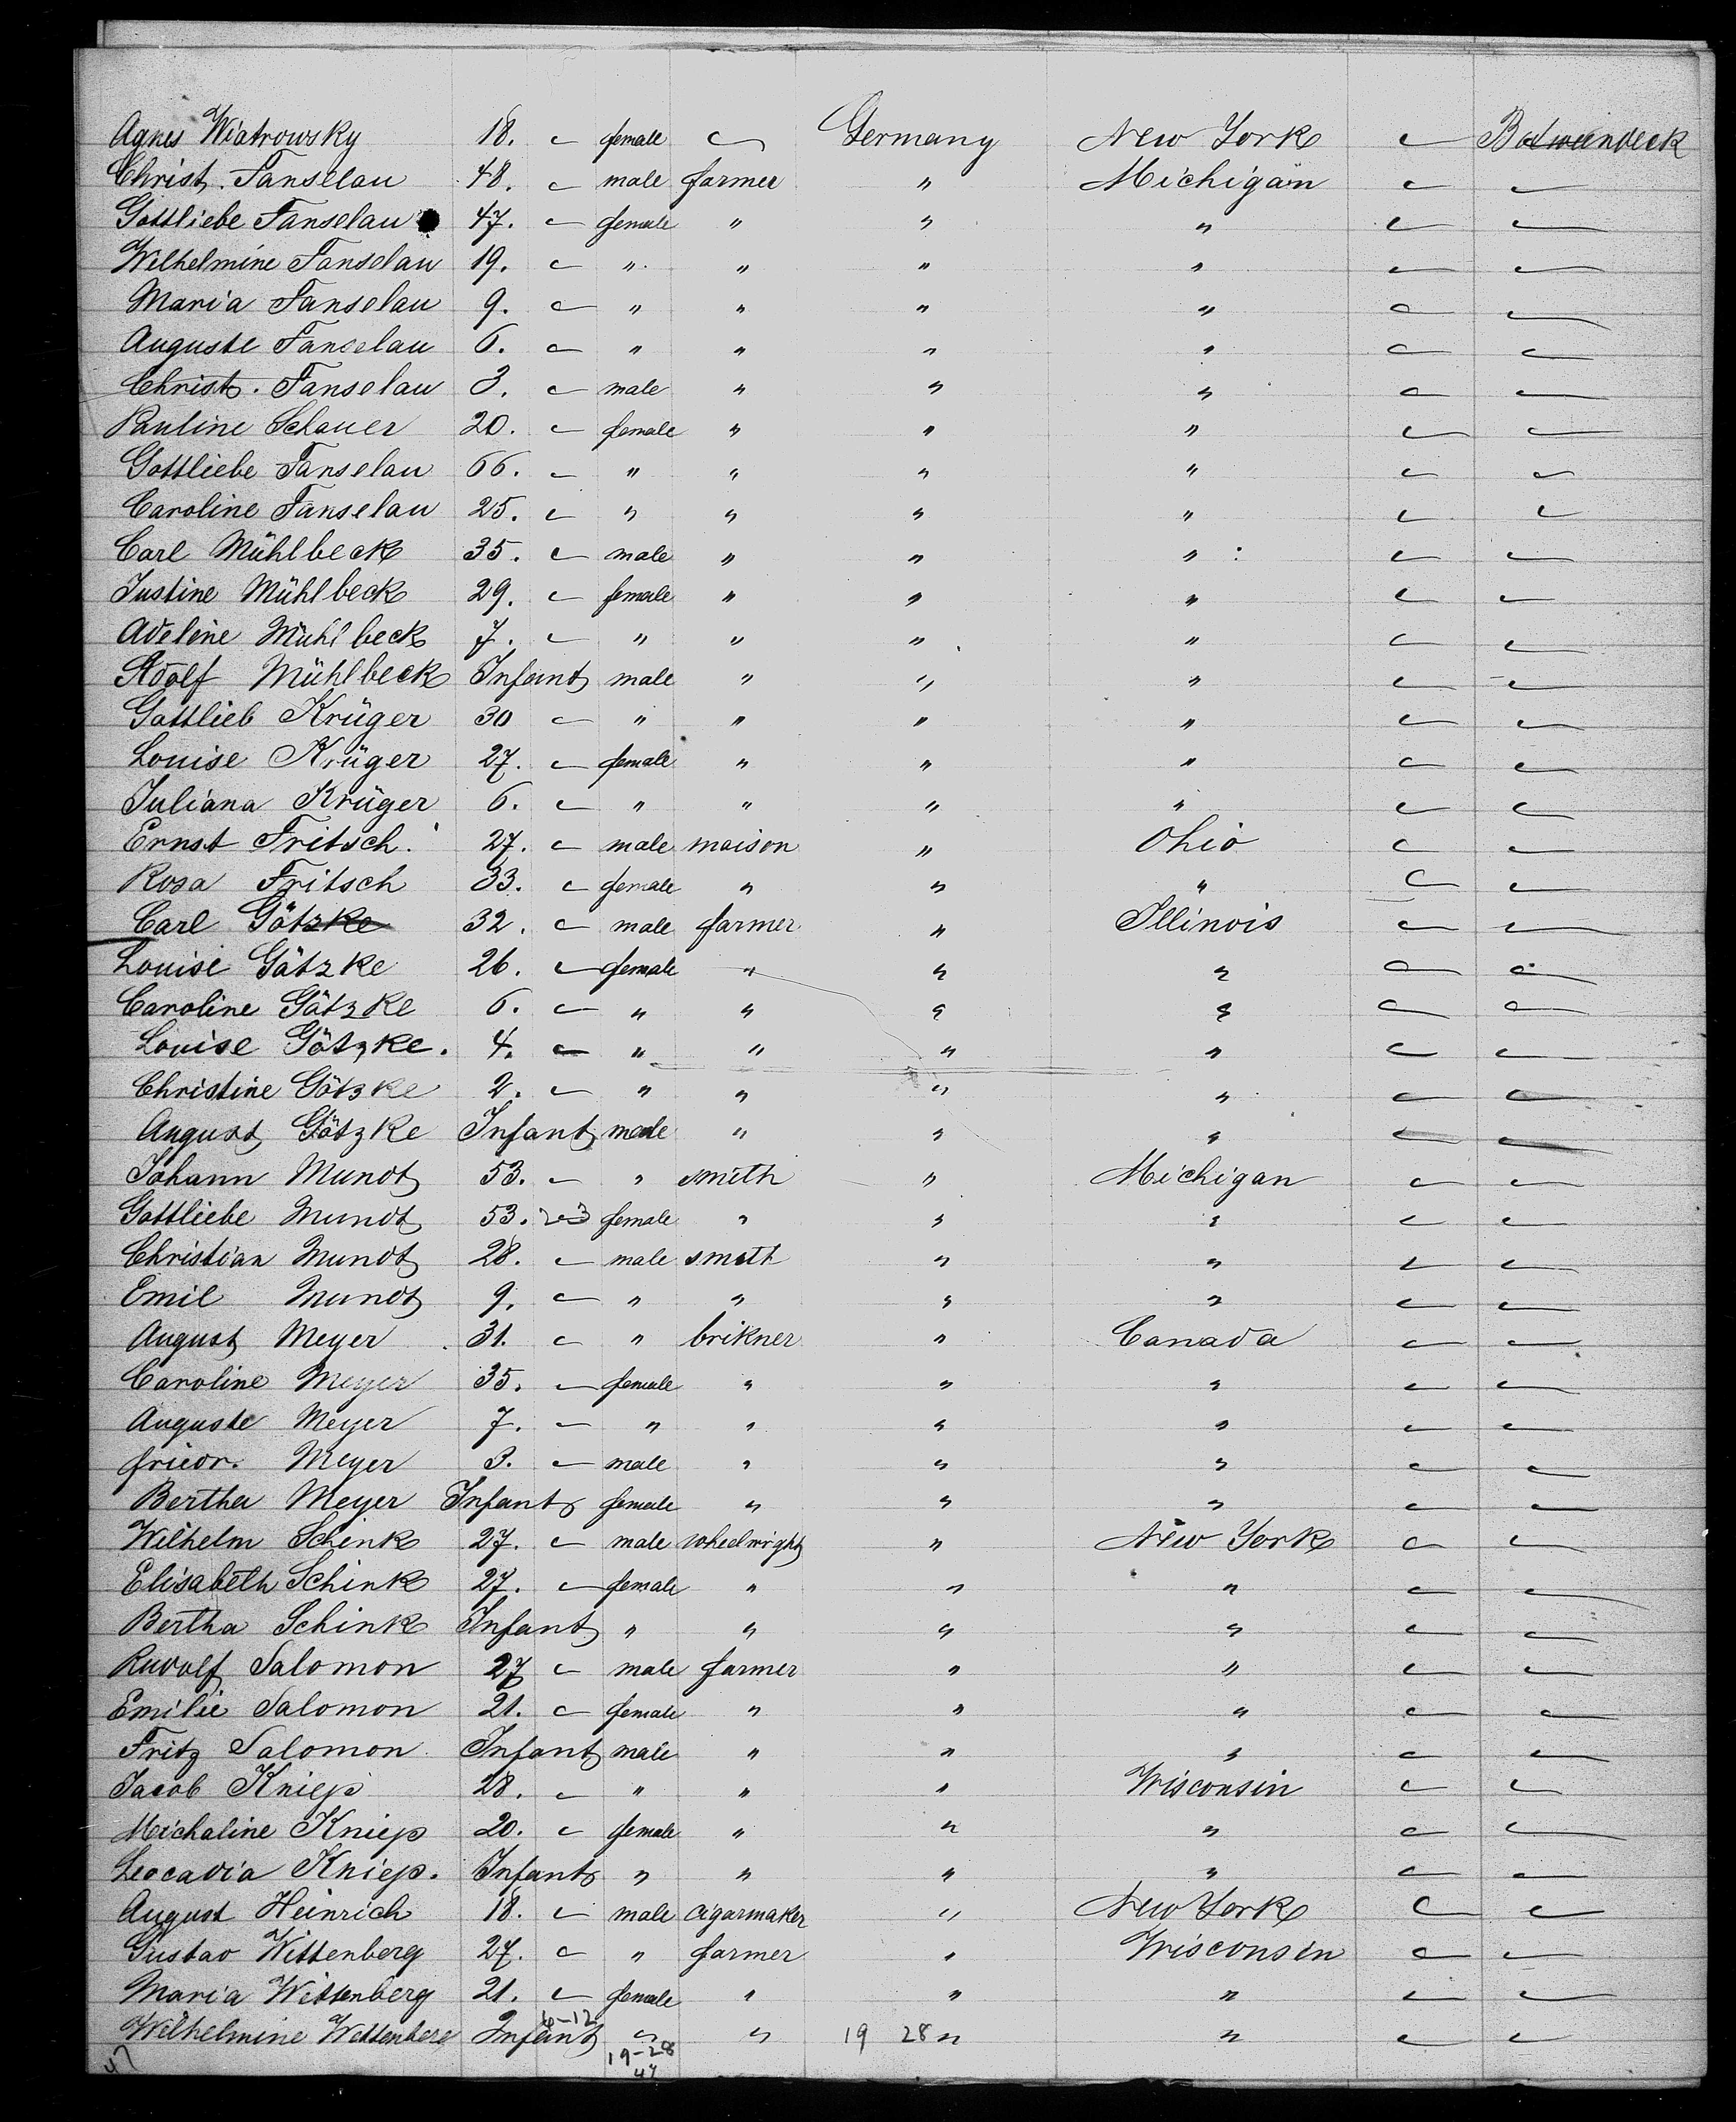 Agnes Wiatrowsky 18. female Germany New York
Christ. Fanselau 48. male farmer " Michigan
Gottliebe Fanselau 47. female " " "
Wilhelmine Fanselau 19. " " " "
Maria Fanselau 9. " " " "
Auguste Fanselau 6. " " " "
Christ. Fanselau 3. male " " "
Pauline Schauer 20. female " " "
Gottliebe Fanselau 66. " " " "
Caroline Fanselau 25. " " " "
Carl Mühlbeck 35. male " " "
Justine Mühlbeck 29. female " " "
Adeline Mühlbeck 7. " " " "
Adolf Mühlbeck Infant male " " "
Gottlieb Krüger 30 " " " "
Louise Krüger 27. female " " "
Juliana Krüger 6. " " " "
Ernst Fritsch. 27. male maison " Ohio
Rosa Fritsch 33. female " " "
Carl Götzke 32. male farmer " Illinois
Louise Götzke 26. female " " "
Caroline Götzke 6. " " " "
Louise Götzke. 4. " " " "
Christine Götzke 2. " " " "
August Götzke Infant male " " "
Johann Mundt 53. " smith " Michigan
Gottliebe Mundt 53. female " " "
Christian Mundt 28. male smith " "
Emil Mundt 9. " " " "
August Meyer 31. " brikner " Canada
Caroline Meyer 35. female " " "
Auguste Meyer 7. " " " "
friedr. Meyer 3. male " " "
Bertha Meyer Infant female " " "
Wilhelm Schink 27. male wheelwright " New York
Elisabeth Schink 27. female " " "
Bertha Schink Infant " " " "
Rudolf Salomon 27 male farmer " "
Emilie Salomon 21. female " " "
Fritz Salomon Infant male " " "
Jacob Kniep 28. " " " Wisconsin
Michaline Kniep 20. female " " "
Leocadia Kniep. Infant " " " "
August Heinrich 18. male cigarmaker " New York
Gustav Wittenberg 27. " farmer " Wisconsin
Maria Wittenberg 21. female " " "
6-12
Wilhelmine Wittenberg Infant " " 19 28 " "
19-28
47
47